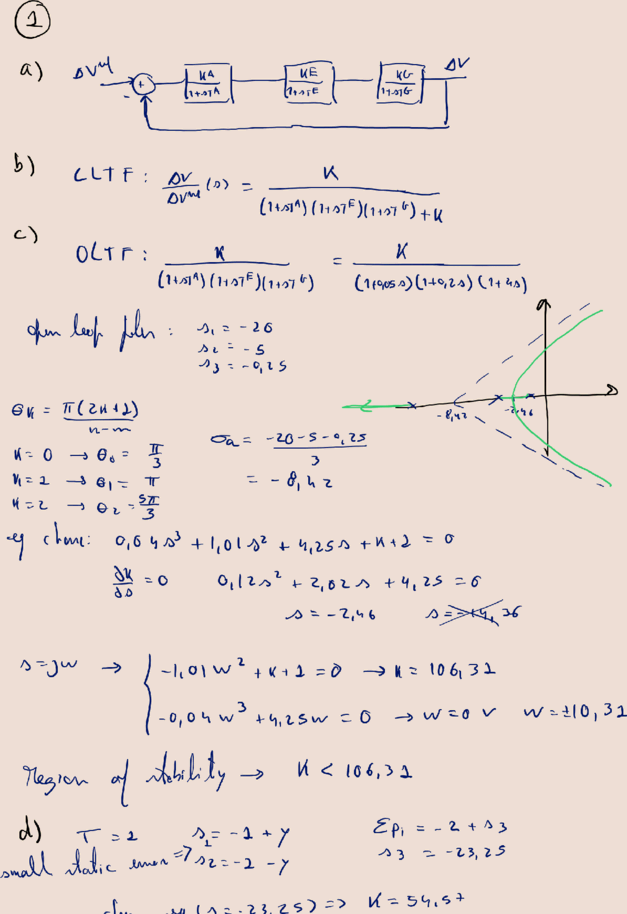 1
a) ΔV^ref + - KA/(1+sTA) KE/(1+sTE) KG/(1+sTG) ΔV
b) CLTF: ΔV/ΔV^ref (s) = K/((1+sT^A)(1+sT^E)(1+sT^G)+K)
c)
OLTF: K/((1+sT^A)(1+sT^E)(1+sT^G)) = K/((1+0,05s)(1+0,2s)(1+4s))
open loop poles: s1 = -20
s2 = -5
s3 = -0,25
-8,42 -2,46
θK = π(2K+1)/(n-m)
σa = (-20-5-0,25)/3
K=0 → θ0 = π/3
= -8,42
K=1 → θ1 = π
K=2 → θ2 = 5π/3
eq char: 0,04s³ + 1,01s² + 4,25s + K+1 = 0
∂K/∂s = 0 0,12s² + 2,02s + 4,25 = 0
s = -2,46 s = -14,36
s=jw → -1,01w² + K+1 = 0 → K = 106,31
-0,04w³ + 4,25w = 0 → w=0 ∨ w=±10,31
Region of stability → K < 106,31
d) T = 1 s1 = -1 + y Σpi = -2 + s3
small static error => s2 = -1 - y s3 = -23,25
(s=-23,25) => K = 54,57